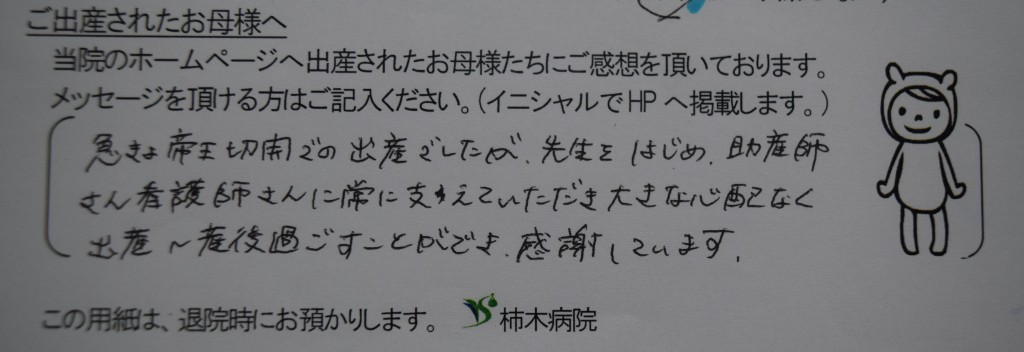 ご出産されたお母様へ
当院のホームページへ出産されたお母様たちにご感想を頂いております。
メッセージを頂ける方はご記入ください。(イニシャルでHPへ掲載します。)
急きょ帝王切開での出産でしたが、先生をはじめ、助産師
さん看護師さんに常に支えていただき大きな心配なく
出産～産後過ごすことができ、感謝しています。
この用紙は、退院時にお預かりします。 柿木病院